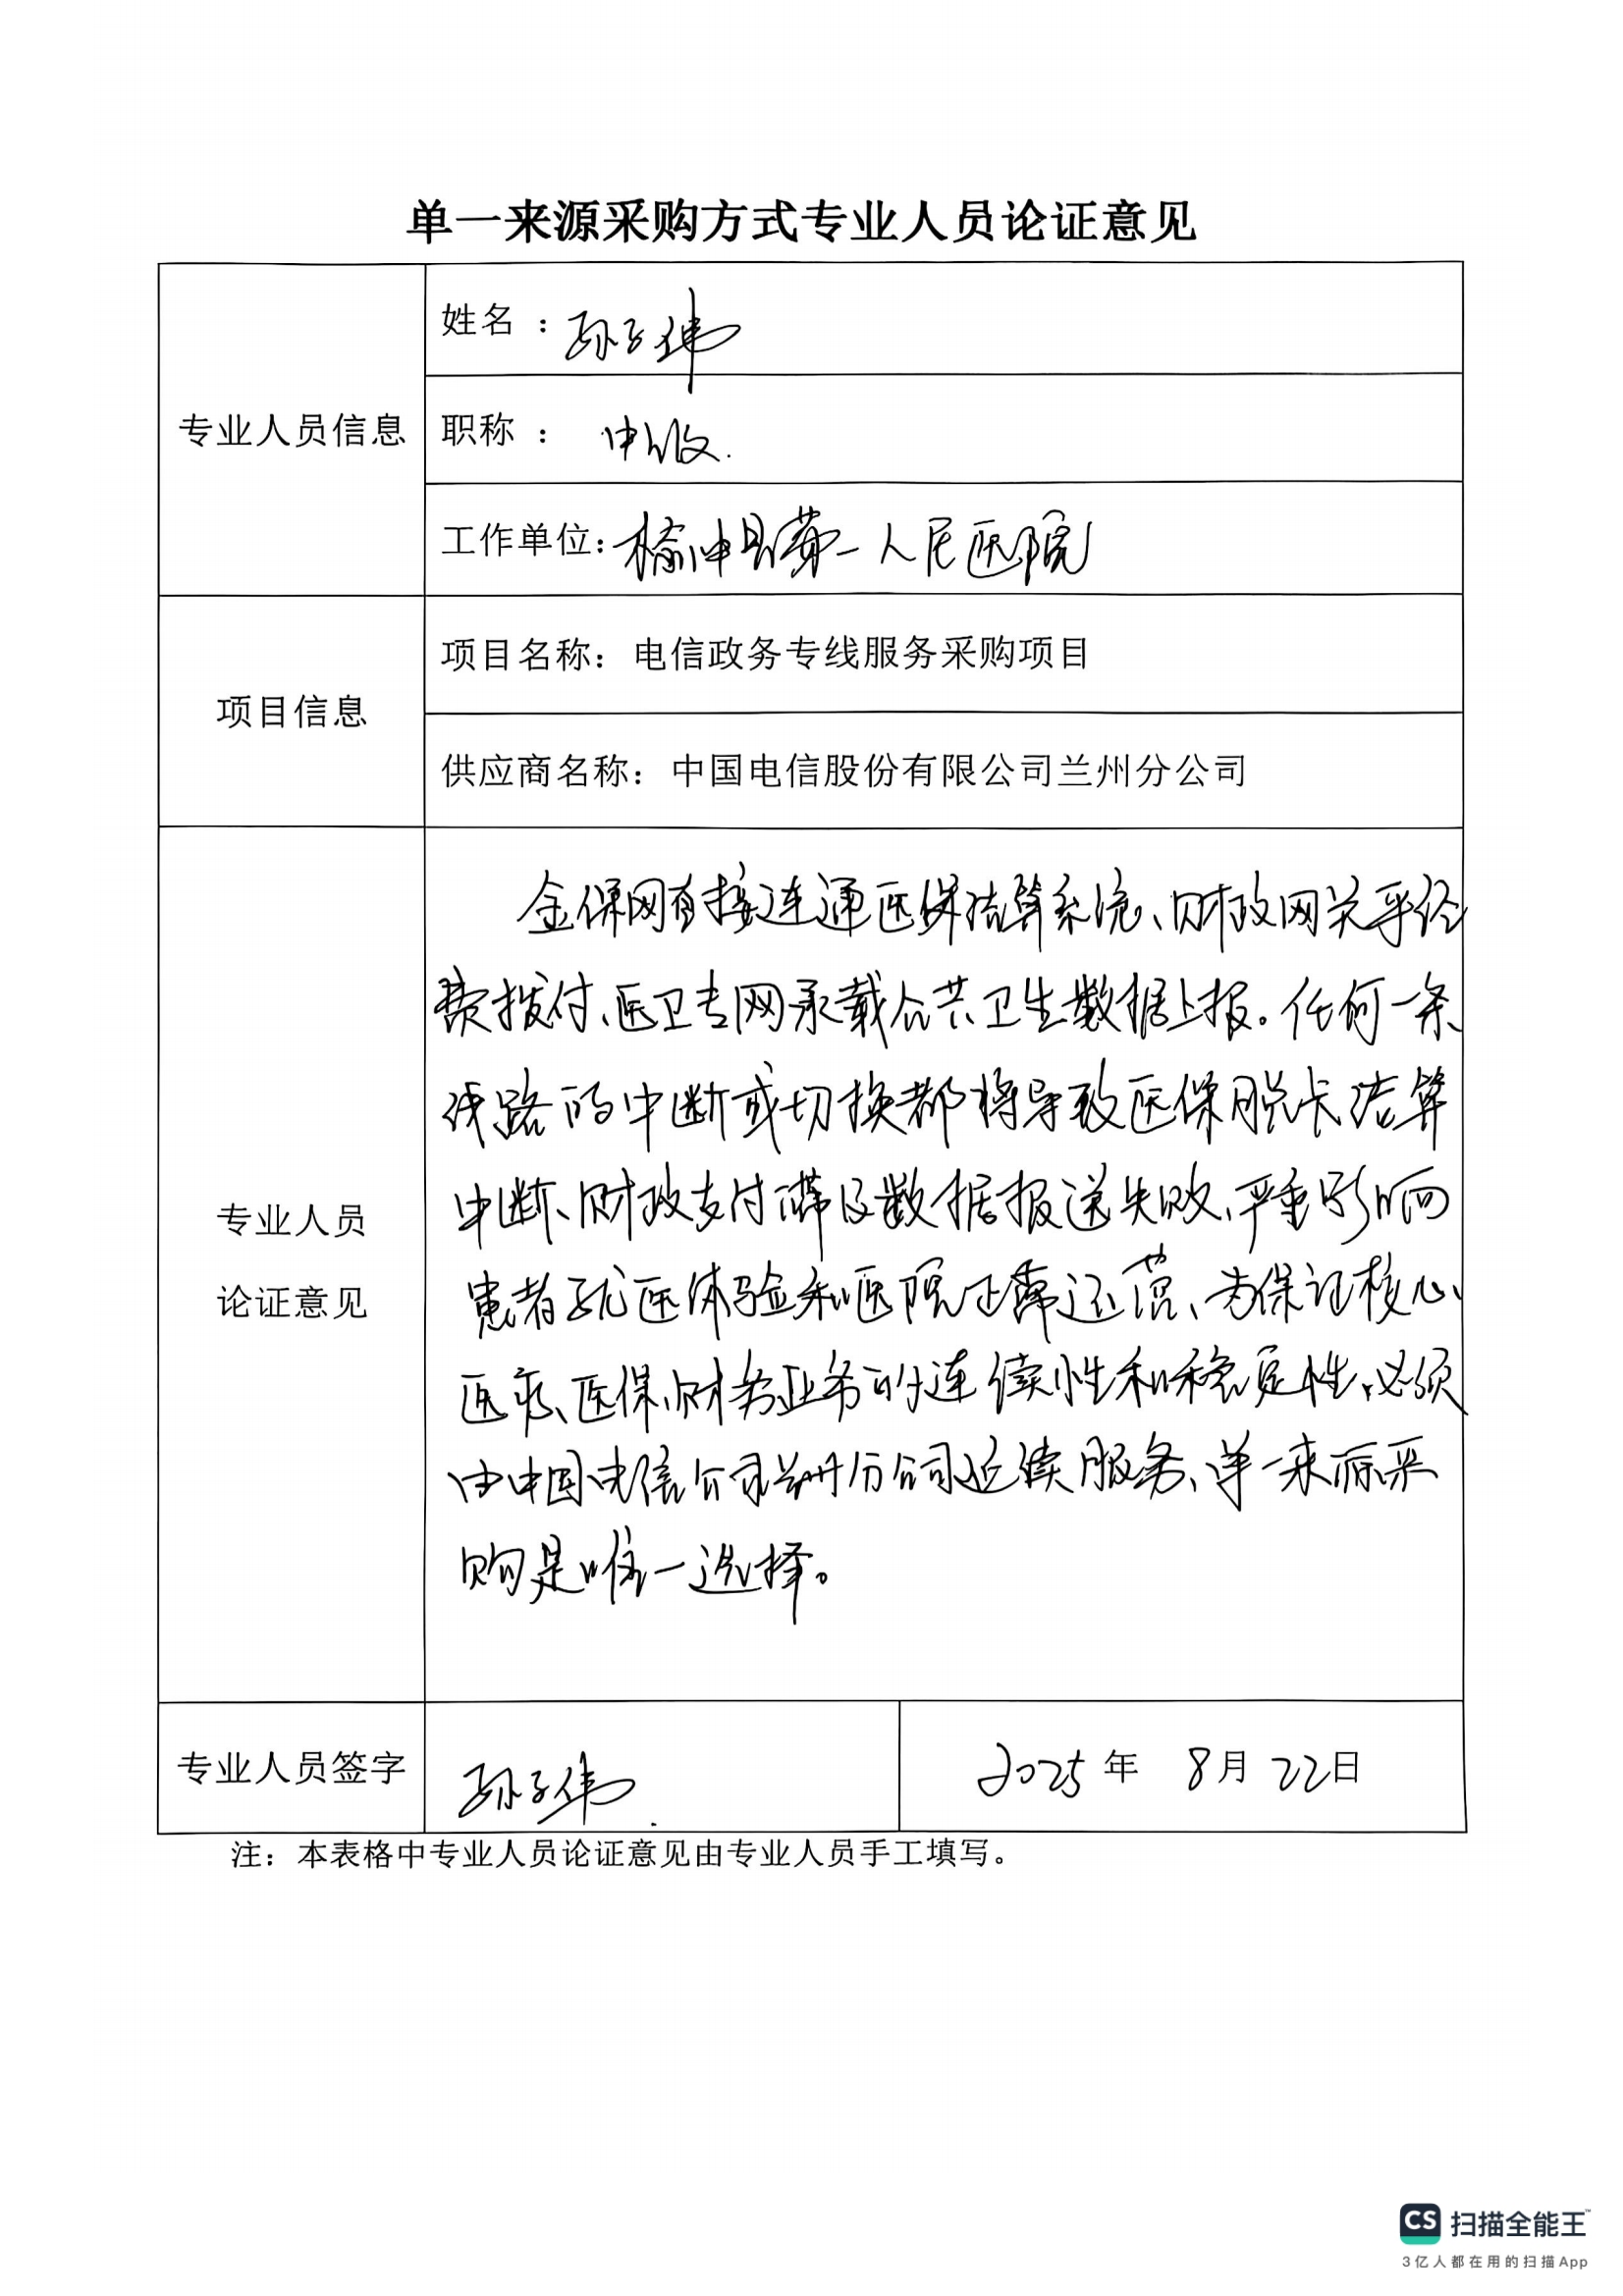 单一来源采购方式专业人员论证意见
专业人员信息
姓名：孙子伟
职称：中级.
工作单位：榆中县第一人民医院
项目信息
项目名称：电信政务专线服务采购项目
供应商名称：中国电信股份有限公司兰州分公司
专业人员
论证意见
金保网直接连通医保结算系统、财政网关乎经
费拨付、医卫专网承载公共卫生数据上报。任何一条
线路的中断或切换都将导致医保脱卡结算
中断、财政支付滞及数据报送失败、严重影响
患者就医体验和医院正常运营、为保证核心
医疗、医保、财务业务的连续性和稳定性、必须
由中国电信公司兰州分公司延续服务、单一来源采
购是唯一选择。
专业人员签字
孙子伟
2025年 8月 22日
注：本表格中专业人员论证意见由专业人员手工填写。
CS 扫描全能王™
3亿人都在用的扫描App